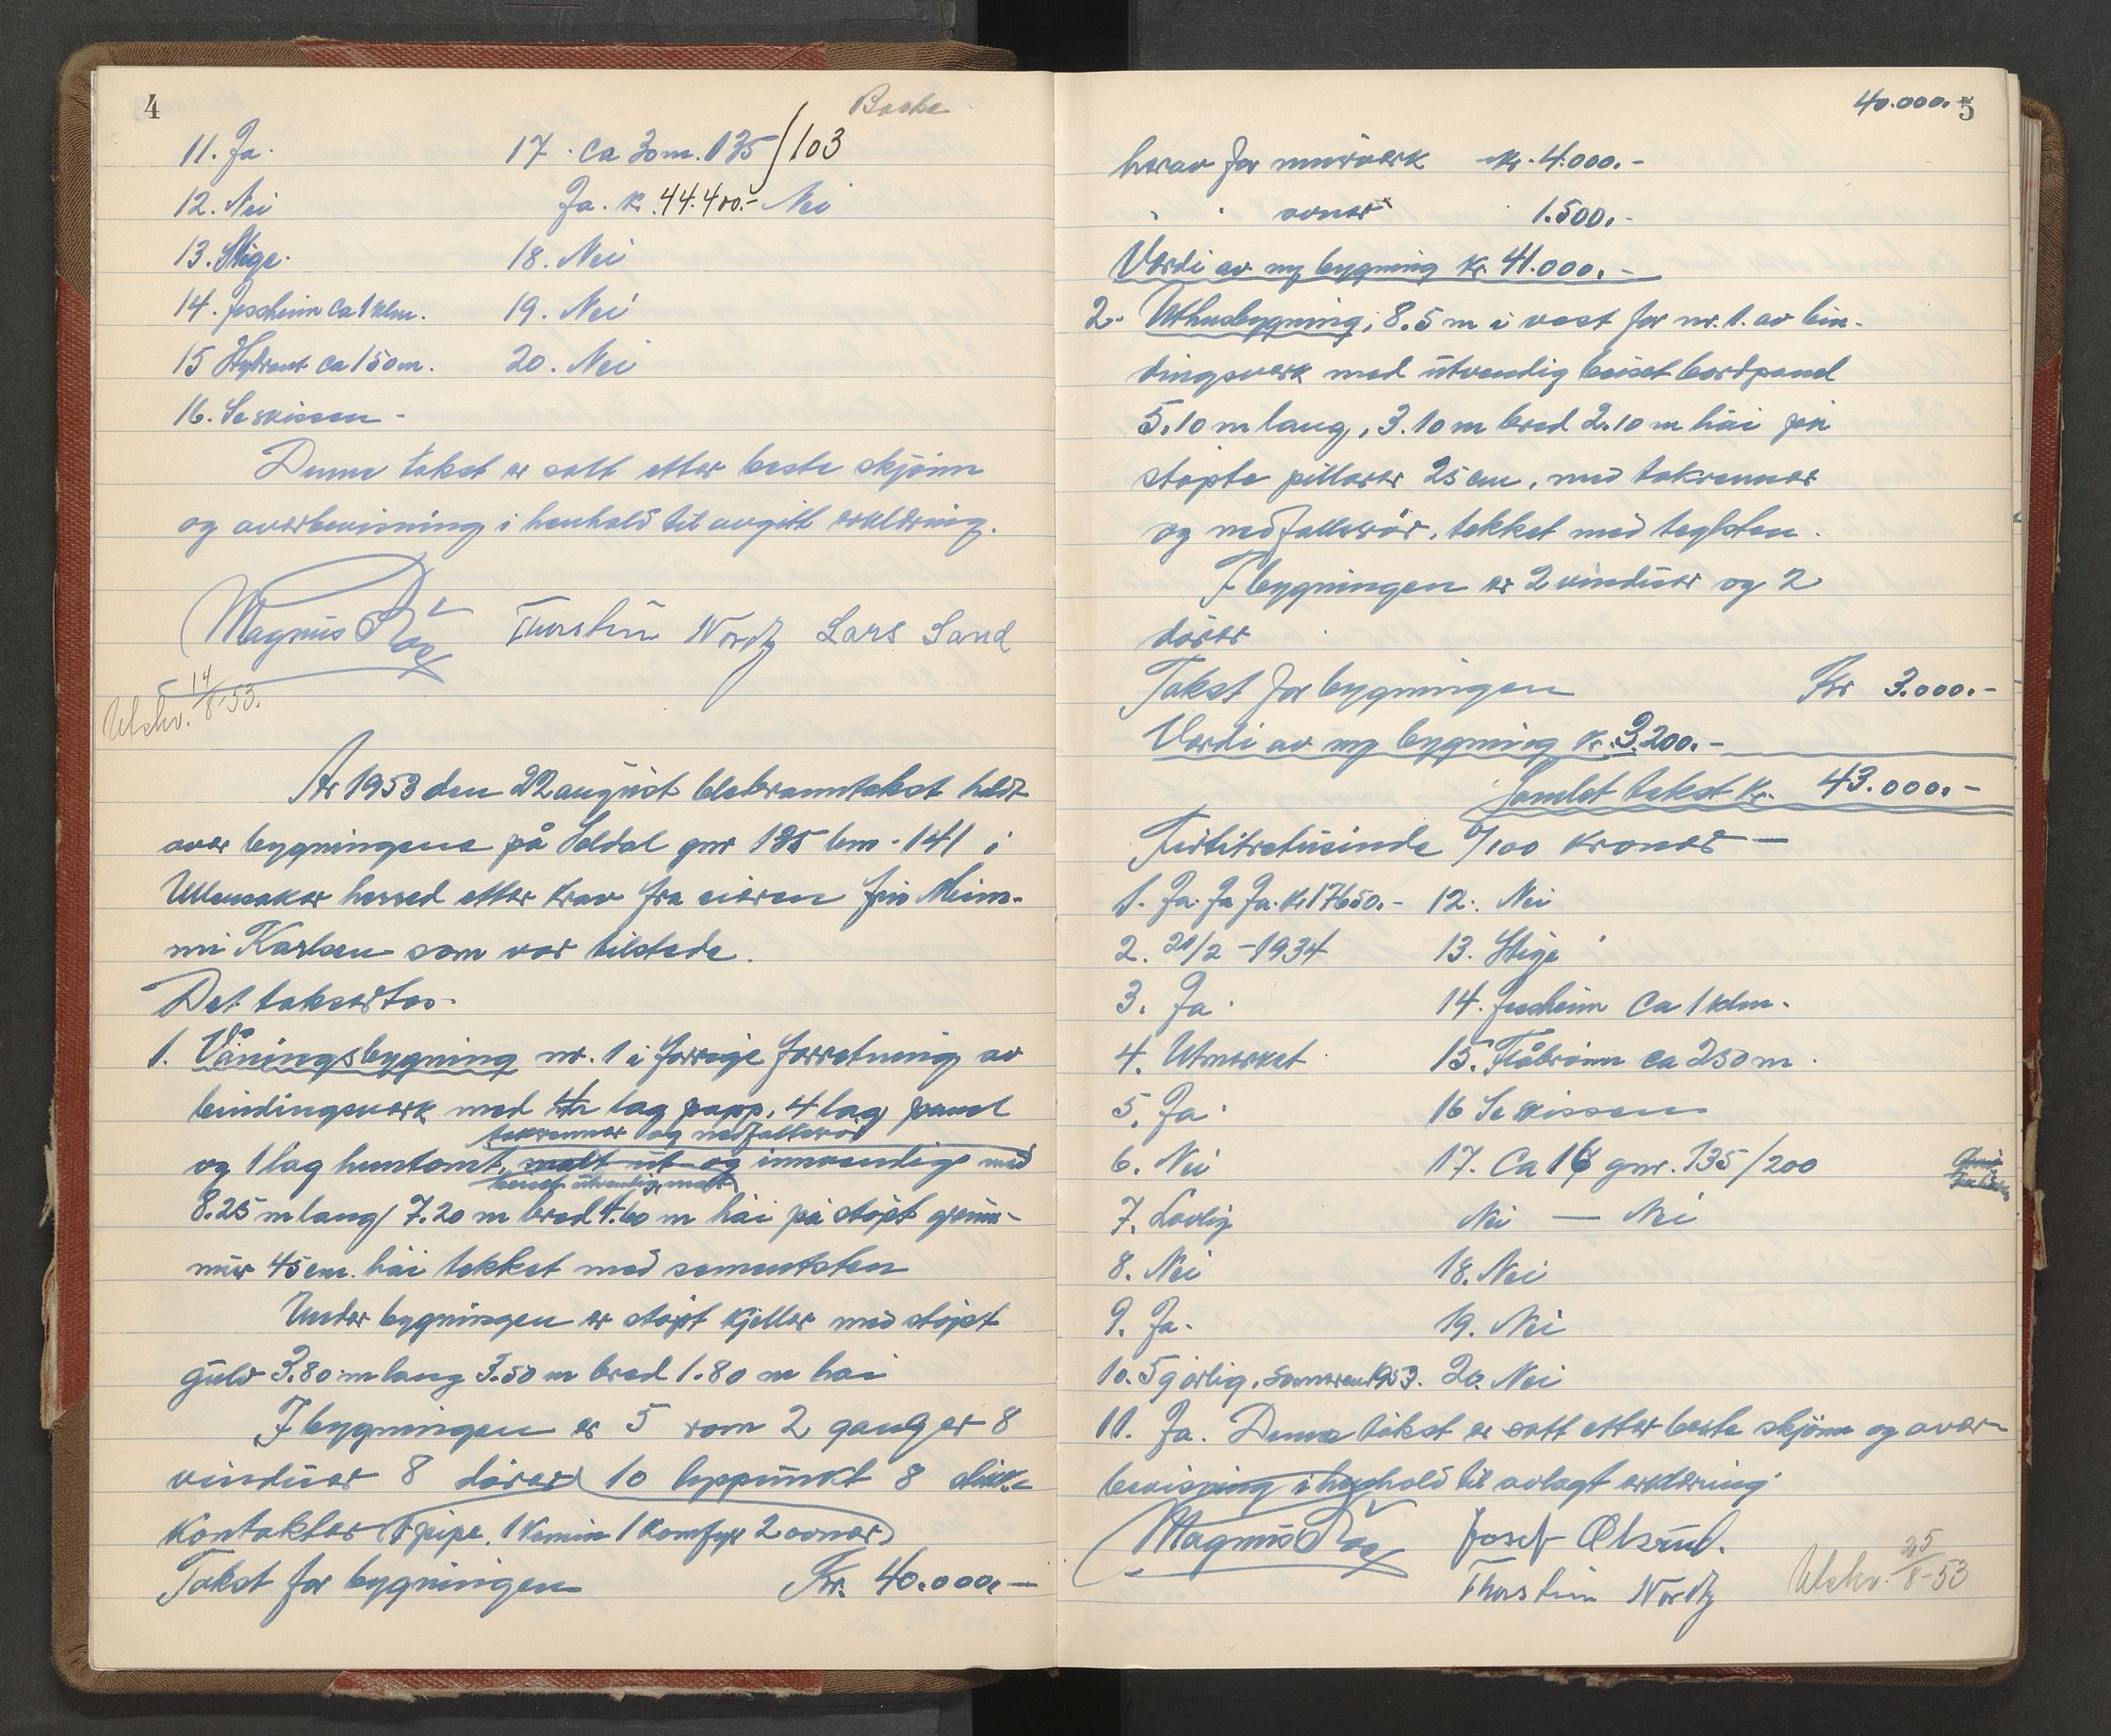 4
Baske
11. Ja.
12. Nei
13. Stige.
14. Jessheim ca 1 klm.
15 Hydrant ca 150 m.
16. Se skissen -
17. ca 30 m. 135/103
Ja. k. 44.400.- Nei
18. Nei
19. Nei
20. Nei
Denne takst er satt etter beste skjönn
og overbevisning i henhold til avgitt erklæring.
Magnus Thorstein Nordby Lars Sand
Utskr. 14/8-53.
År 1953 den 22 august ble branntakst holdt
over bygningene på Soldal gnr 135 bnr. 141 i
Ullensaker herred etter krav fra eieren fru Mim-
mi Karlsen som var tilstede.
Det taksertes.
1. Våningsbygning nr. 1 i forrige forretning av
bindingsverk med lag papp, 4 lag panel
takrenner og nedfallsrör
og 1 lag huntonit, malt ut og innvendig med
beiset utvendig, malt
8.25 m lang, 7.20 m bred 4.60 m håi på stöpt grunn-
mur 45 cm. håi tekket med sementsten
Under bygningen er stöpt kjeller med stöpt
gulv 3.80 m lang 3.50 m bred 1.80 m håi
I bygningen er 5 rom 2 ganger 8
vinduer 8 dörer 10 lyspunkt 8 stikk-
kontakter 1 pipe, 1 kamin 1 komfyr 2 ovner
Takst for bygningen Kr. 40.000.-
5
40.000.-
herav for murverk kr. 4.000.-
" " ovner 1.500.-
Verdi av ny bygning kr. 41.000.-
2. Uthusbygning, 8.5 m i vest for nr. 1. av bin-
dingsverk med utvendig beiset bordpanel
5.10 m lang, 3.10 m bred 2.10 m håi på
stöpte pillarer 25 cm, med takrenner
og nedfallsrör, tekket med teglsten.
I bygningen er 2 vinduer og 2
dörer
Takst for bygningen Kr 3.000.-
Verdi av ny bygning kr. 3.200.-
Samlet takst kr. 43.000.-
Förtitretusinde 0/100 kroner -
1. Ja. Ja Ja. kr 17650.-
2. 20/2 - 1934
3. Ja.
4. Utmerket
5. Ja.
6. Nei
7. Lovlig
8. Nei
9. Ja.
10. 5 g årlig, sommeren 1953.
12. Nei
13. Stige
14. Jessheim ca 1 klm.
15. Flåbrönn ca 250 m.
16 Se skissen
17. Ca 16 gnr. 135/200
Nei - Nei
18. Nei
19. Nei
20. Nei
11. Ja. Denne takst er satt etter beste skjönn og over-
bevisning i henhold til avlagt erklæring.
Magnus Josef Olsrud.
Thorstein Nordby
Utskr. 25/8-53